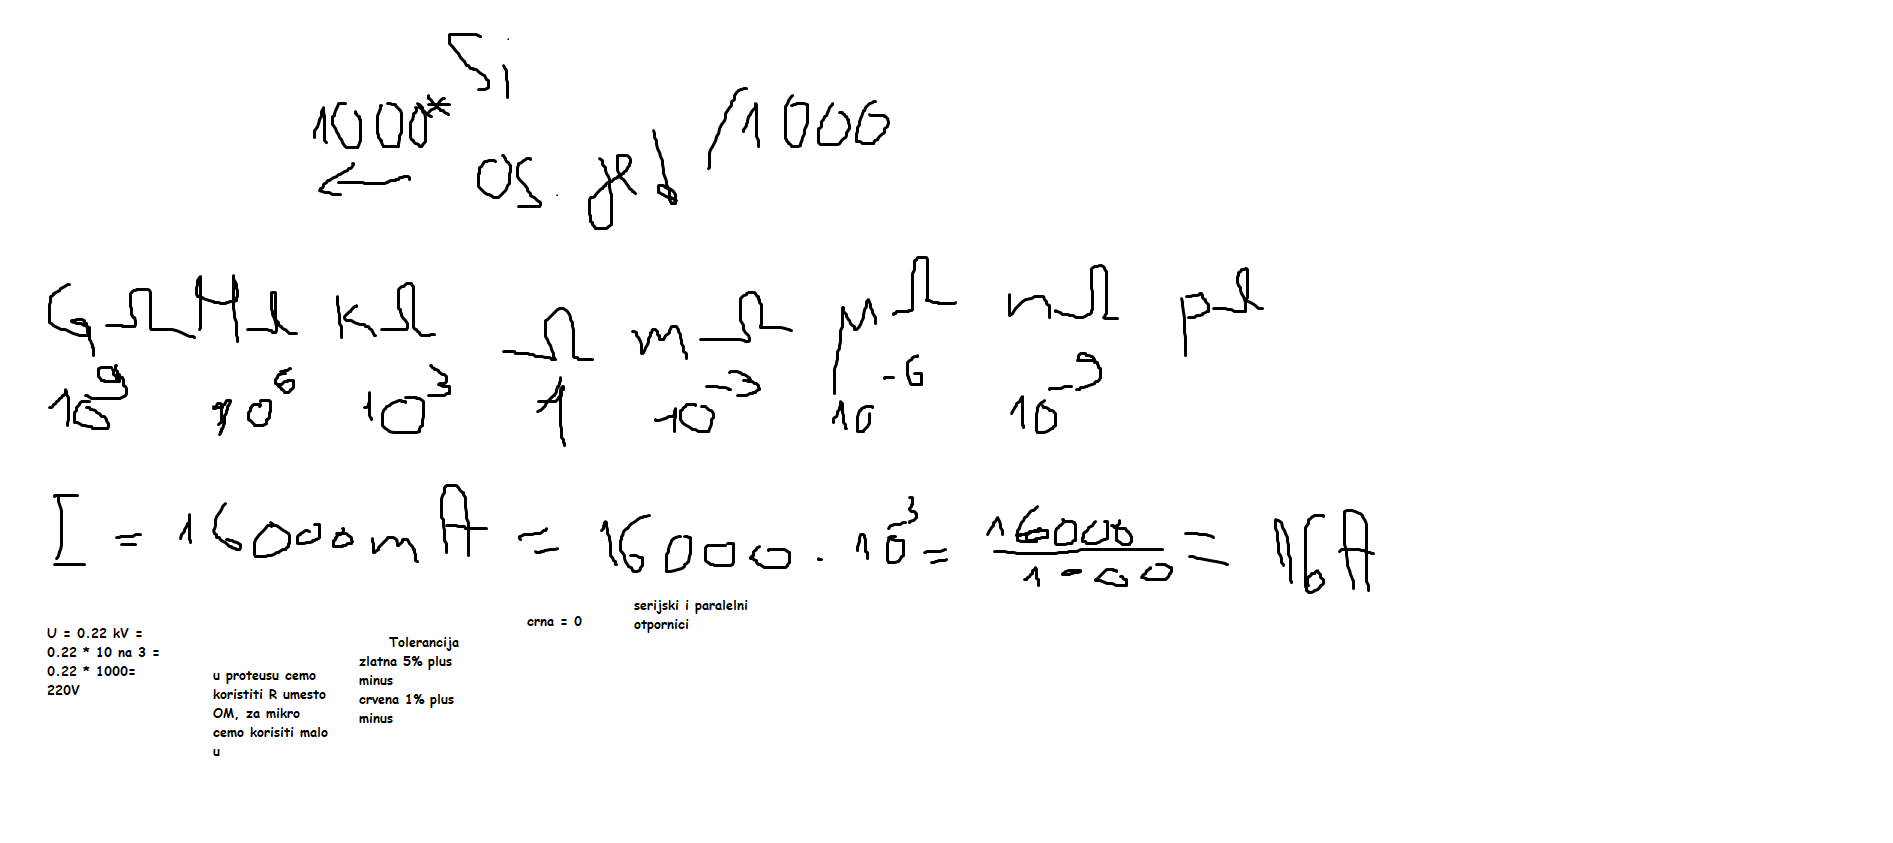 Si
1000* os. jed /1000
←
GΩ MΩ kΩ Ω mΩ μΩ nΩ pΩ
10⁹ 10⁶ 10³ 1 10⁻³ 10⁻⁶ 10⁻⁹
I = 16000mA = 16000 · 10⁻³ = 16000/1000 = 16A
U = 0.22 kV =
0.22 * 10 na 3 =
0.22 * 1000=
220V
u proteusu cemo
koristiti R umesto
OM, za mikro
cemo korisiti malo
u
Tolerancija
zlatna 5% plus
minus
crvena 1% plus
minus
crna = 0
serijski i paralelni
otpornici